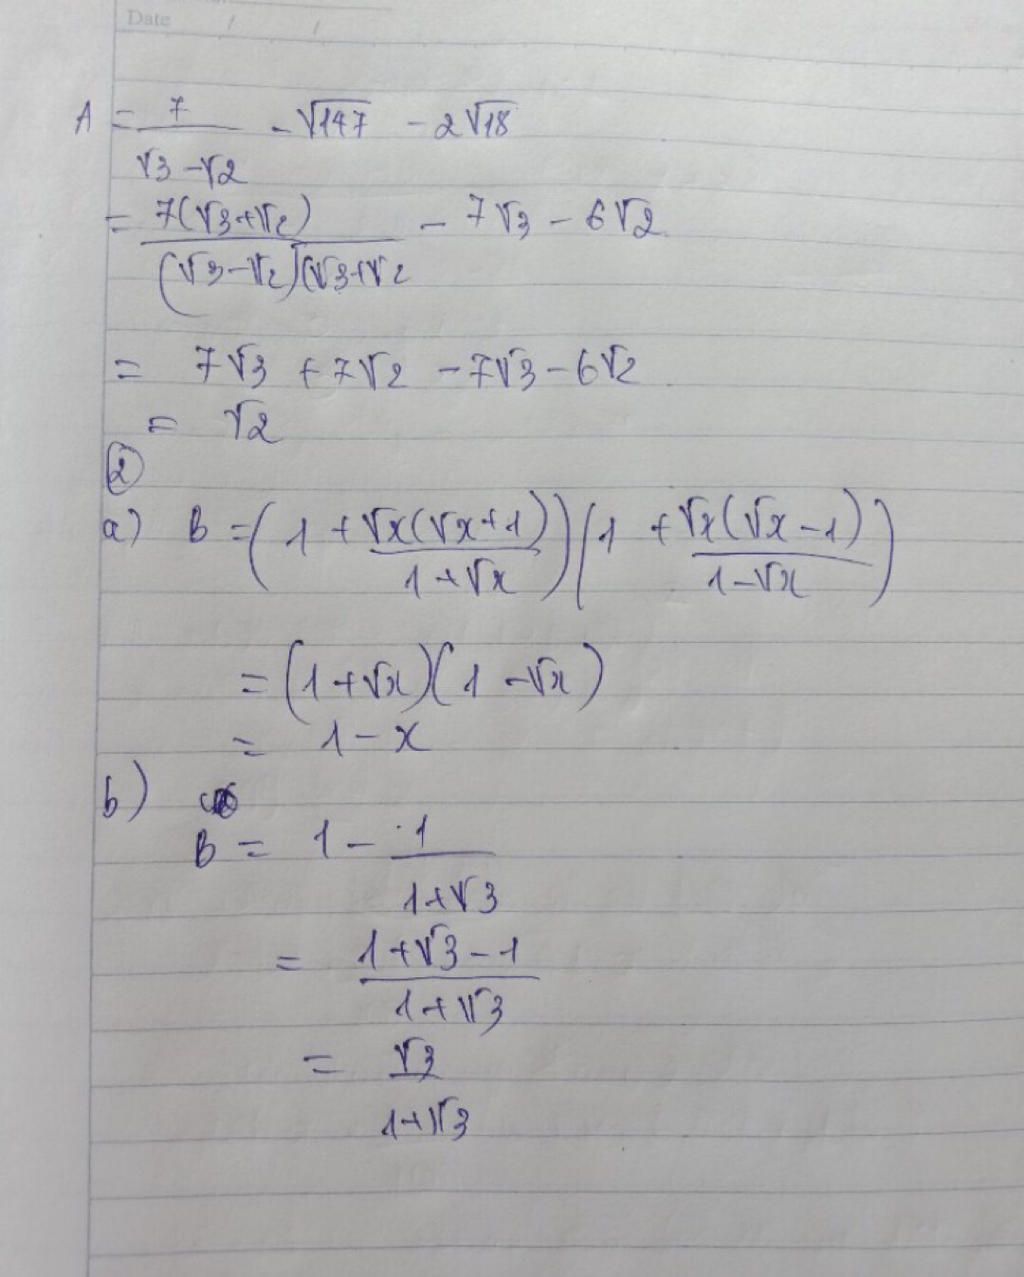 Date / /
A = 7/(√3 - √2) - √147 - 2√18
= 7(√3+√2)/((√3-√2)(√3+√2) - 7√3 - 6√2
= 7√3 + 7√2 - 7√3 - 6√2
= √2
②
a) B = (1 + √x(√x+1)/(1+√x))(1 + √x(√x-1)/(1-√x))
= (1+√x)(1-√x)
= 1 - x
b)
B = 1 - 1/(1+√3)
= (1+√3-1)/(1+√3)
= √3/(1+√3)